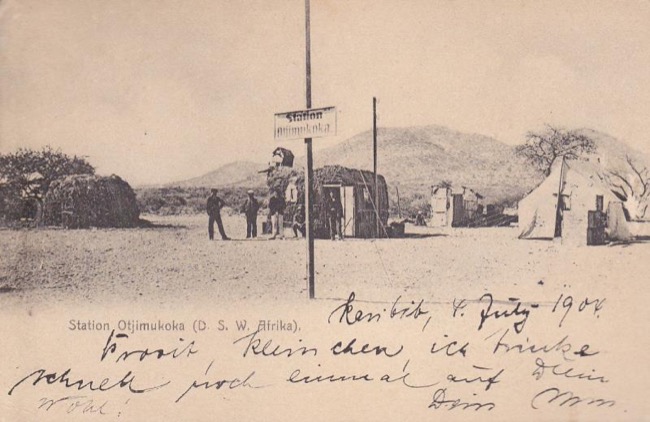 Station
Otjimukoka.
Station Otjimukoka (D. S. W. Afrika).
Karibib, 4. July 1904.
Prosit, Kleinchen, ich trinke
schnell noch einmal auf Dein
Wohl!
Dein